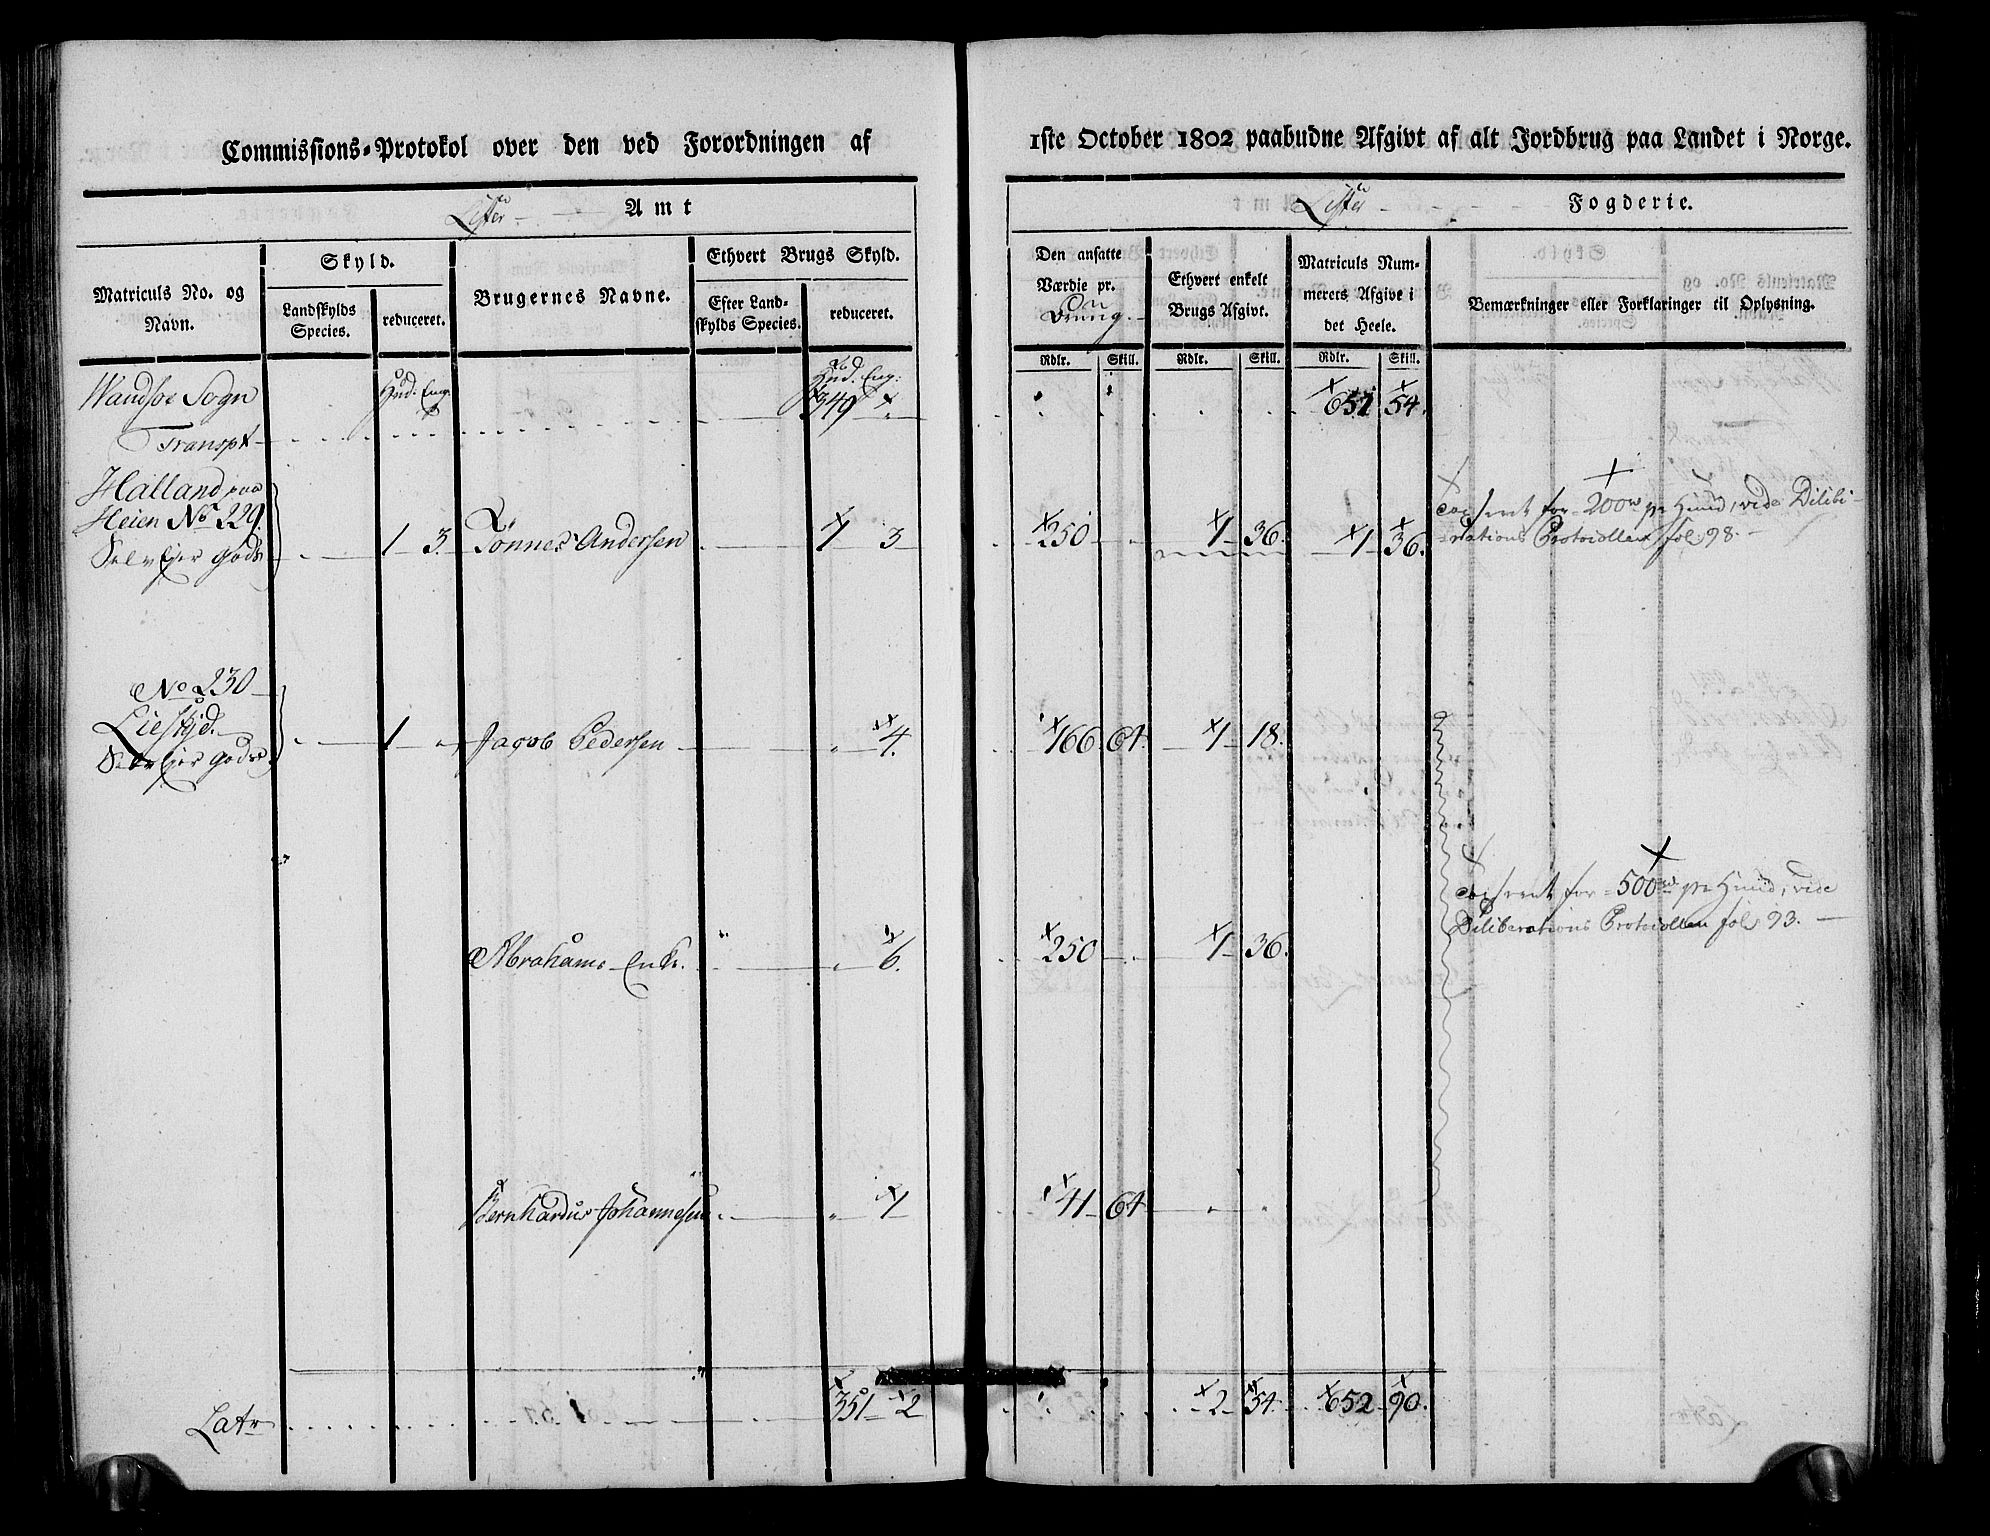 Commissions-Protokol over den ved Forordningen af
1ste October 1802 paabudne Afgivt af alt Jordbrug paa Landet i Norge.
Lister Amt
Lister Fogderie.
Matriculs No. og Navn.
Skyld.
Landskylds Species.
reduceret.
Brugernes Navne.
Ethvert Brugs Skyld.
Efter Landskylds Species.
reduceret.
Den ansatte Værdie pr. Brug.
Ethvert enkelt Brugs Afgivt.
Matriculs Nummerets Afgivt i det Heele.
Bemærkninger eller Forklaringer til Oplysning.
Rdlr. Skill. Rdlr. Skill. Rdlr. Skill.
Wandsøe Sogn Hud: Eng: Hud. Eng:
Transpt 349 " 651 54.
Halland paa
Heien No 229.
Selveier gods 1 3. Tønnes Andersen 1 3 250 1 36. 1 36.
taxseret for 200 rd pr Huud, vide Dilibe-
rations Protocollen fol: 98.
No 230
Lieskjd.
Selveier gods 1 " Jacob Pedersen " 4. 166 64. 1 18.
taxseret for 500 rd pr Huud, vide
Diliberations Protocollen fol 93.
Abrahams Enke. " 6. 250 1 36.
Bernhardus Johannesen " 1 41 64 " "
Latr 351 2 2 54. 652 90.